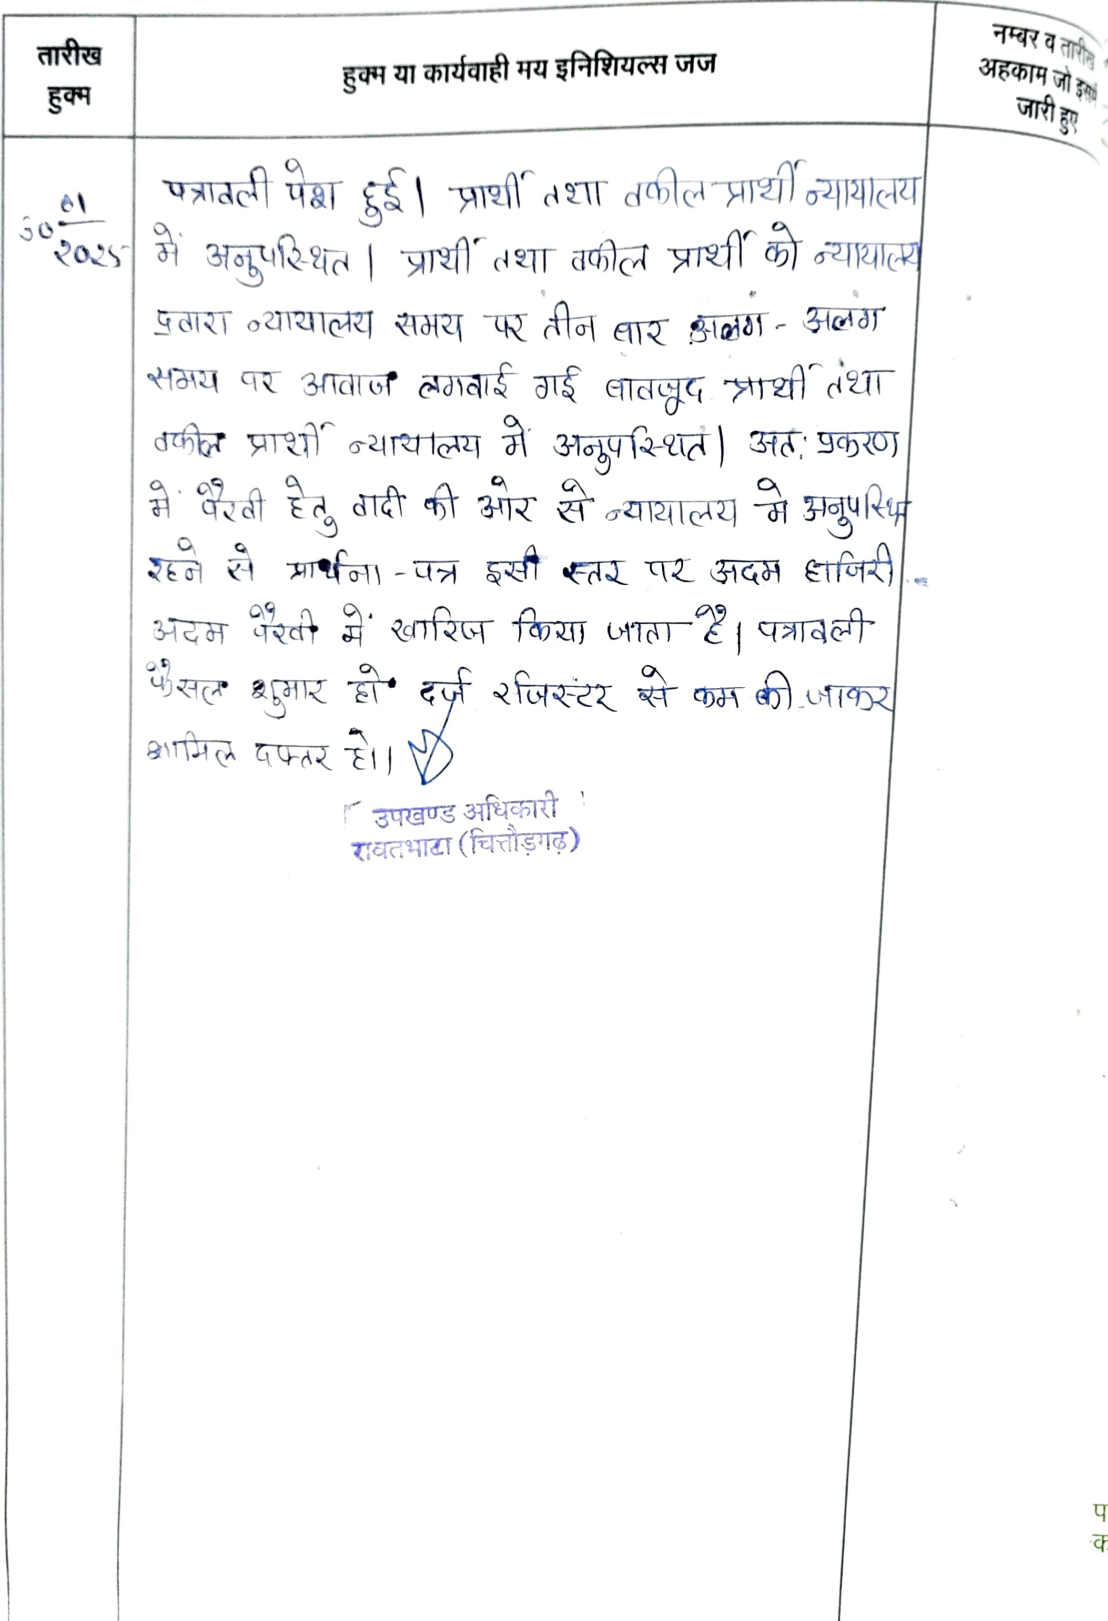 तारीख
हुक्म
हुक्म या कार्यवाही मय इनिशियल्स जज
नम्बर व तारीख
अहकाम जो इसमें
जारी हुए
30 01
2025
पत्रावली पेश हुई। प्रार्थी तथा वकील प्रार्थी न्यायालय
में अनुपस्थित। प्रार्थी तथा वकील प्रार्थी को न्यायालय
द्वारा न्यायालय समय पर तीन बार अलग - अलग
समय पर आवाज लगवाई गई बावजूद प्रार्थी तथा
वकील प्रार्थी न्यायालय में अनुपस्थित। अत: प्रकरण
में पैरवी हेतु वादी की ओर से न्यायालय मे अनुपस्थित
रहने से प्रार्थना - पत्र इसी स्तर पर अदम हाजिरी
अदम पैरवी में खारिज किया जाता है। पत्रावली
फैसल शुमार हो दर्ज रजिस्टर से कम की जाकर
शामिल दफ्तर हो।
उपखण्ड अधिकारी
रावतभाटा (चित्तौड़गढ़)
प
क